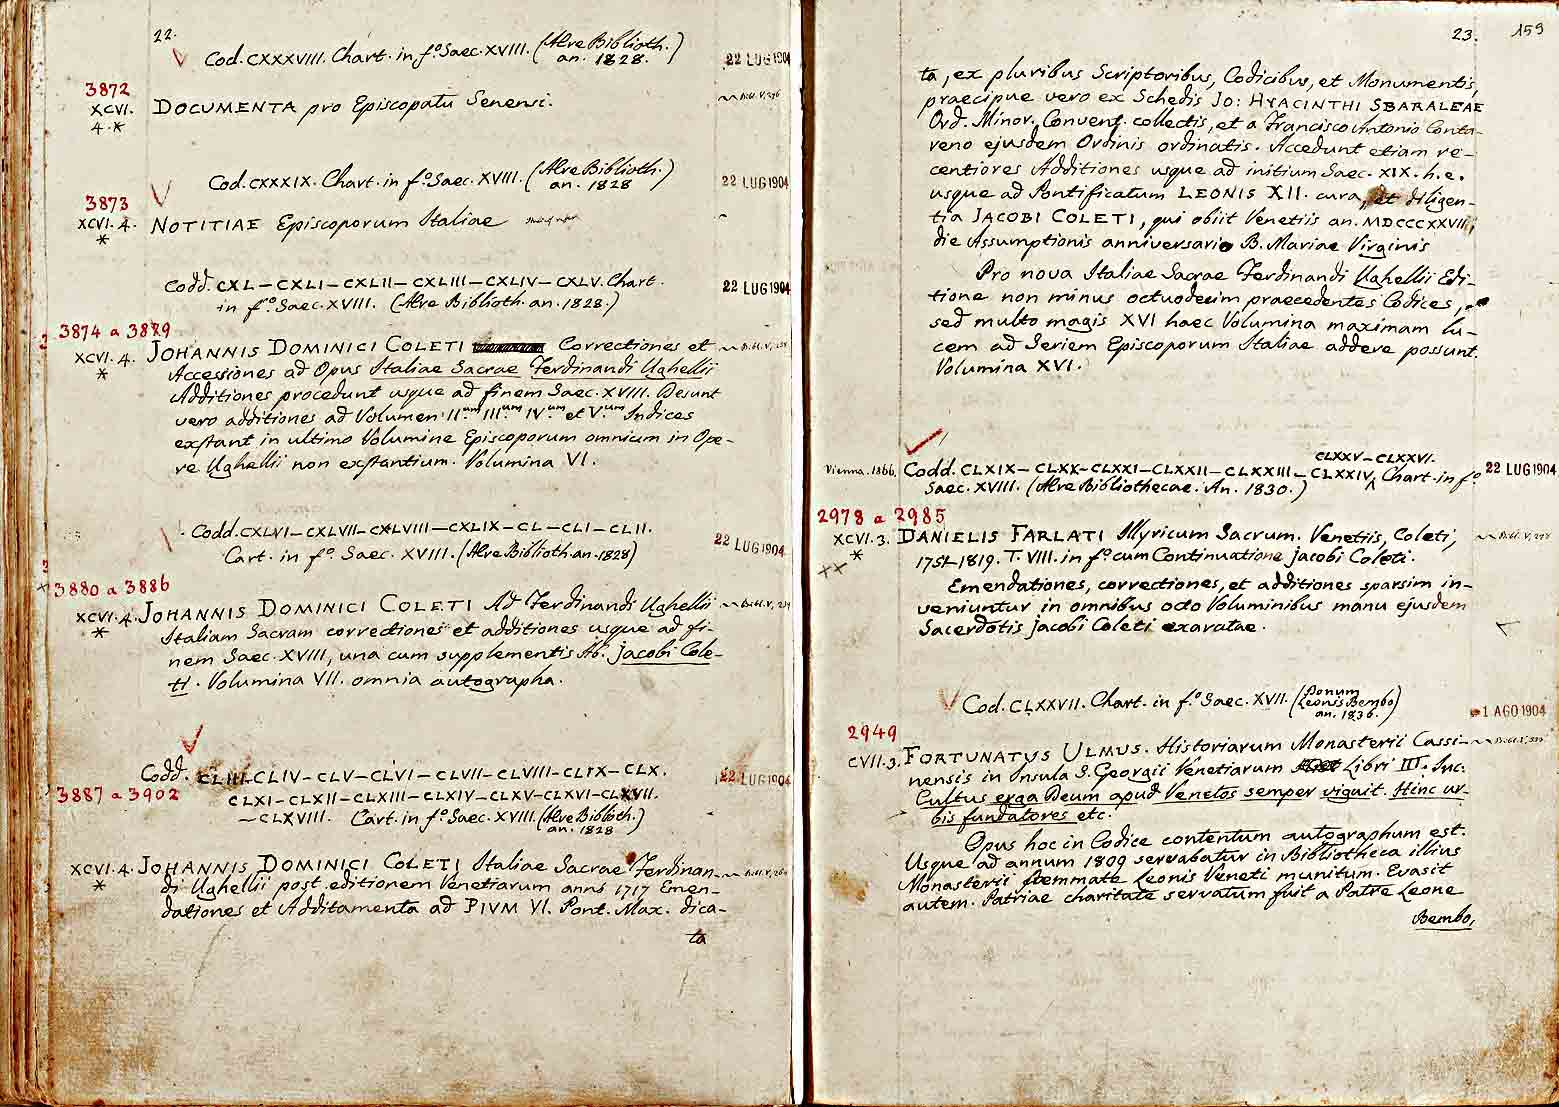 22.
Cod. CXXXVIII. Chart. in f.º Saec. XVIII. (Aere Biblioth. an. 1828.)
22 LUG 1904
3872
XCVI. 4. *
DOCUMENTA pro Episcopatu Senensi.
Cod. CXXXIX. Chart. in f.º Saec. XVIII. (Aere Biblioth. an. 1828)
22 LUG 1904
3873
XCVI. 4. *
NOTITIAE Episcoporum Italiae
Codd. CXL – CXLI – CXLII – CXLIII – CXLIV – CXLV. Chart.
22 LUG 1904
in f.º Saec. XVIII. (Aere Biblioth. an. 1828.)
3874 a 3879
XCVI. 4. *
JOHANNIS DOMINICI COLETI Correctiones et
Accessiones ad Opus Italiae Sacrae Ferdinandi Ughellii
Additiones procedunt usque ad finem Saec. XVIII. Desunt
vero additiones ad Volumen II.um III.um IV.um et V.um Indices
exstant in ultimo Volumine Episcoporum omnium in Ope-
re Ughellii non exstantium. Volumina VI.
Codd. CXLVI – CXLVII – CXLVIII – CXLIX – CL – CLI – CLII.
22 LUG 1904
Cart. in f.º Saec. XVIII. (Aere Biblioth. an. 1828)
3880 a 3886
XCVI. 4. *
JOHANNIS DOMINICI COLETI Ad Ferdinandi Ughellii
Italiam Sacram correctiones et additiones usque ad fi-
nem Saec. XVIII, una cum supplementis Ab. Jacobi Cole-
ti. Volumina VII. omnia autographa.
Codd. CLIII – CLIV – CLV – CLVI – CLVII – CLVIII – CLIX – CLX.
22 LUG 1904
3887 a 3902
CLXI – CLXII – CLXIII – CLXIV – CLXV – CLXVI – CLXVII.
– CLXVIII. Cart. in f.º Saec. XVIII. (Aere Biblioth. an. 1828)
XCVI. 4. *
JOHANNIS DOMINICI COLETI Italiae Sacrae Ferdinan-
di Ughellii post editionem Venetiarum anni 1717 Emen-
dationes et Additamenta ad PIVM VI. Pont. Max. dica-
ta
23.
159
ta, ex pluribus Scriptoribus, Codicibus, et Monumentis,
praecipue vero ex Schedis JO: HYACINTHI SBARALEAE
Ord. Minor. Convent. collectis, et a Francisco Antonio Conta-
reno ejusdem Ordinis ordinatis. Accedunt etiam re-
centiores Additiones usque ad initium Saec. XIX. h. e.
usque ad Pontificatum LEONIS XII. cura, et diligen-
tia JACOBI COLETI, qui obiit Venetiis an. MDCCCXXVII,
die Assumptionis anniversario B. Mariae Virginis
Pro nova Italiae Sacrae Ferdinandi Ughellii Edi-
tione non minus octuodecim praecedentes Codices,
sed multo magis XVI haec Volumina maximam lu-
cem ad Seriem Episcoporum Italiae addere possunt.
Volumina XVI.
CLXXV – CLXXVI.
Vienna. 1866.
Codd. CLXIX – CLXX – CLXXI – CLXXII – CLXXIII – CLXXIV Chart. in f.º
22 LUG 1904
Saec. XVIII. (Aere Bibliothecae. An. 1830.)
2978 a 2985
XCVI. 3. *
DANIELIS FARLATI Illyricum Sacrum. Venetiis, Coleti,
1751-1819. T. VIII. in f.º cum Continuatione Jacobi Coleti.
Emendationes, correctiones, et additiones sparsim in-
veniuntur in omnibus octo Voluminibus manu ejusdem
Sacerdotis Jacobi Coleti exaratae.
Cod. CLXXVII. Chart. in f.º Saec. XVII. (Donum Leonis Bembo an. 1836.)
1 AGO 1904
2949
CVII. 3.
FORTUNATUS ULMUS. Historiarum Monasterii Cassi-
nensis in Insula S. Georgii Venetiarum Libri III. Inc.
Cultus erga Deum apud Venetos semper viguit. Hinc ur-
bis fundatores etc.
Opus hoc in Codice contentum autographum est.
Usque ad annum 1809 servabatur in Bibliotheca illius
Monasterii stemmate Leonis Veneti munitum. Evasit
autem. Patriae charitate servatum fuit a Patre Leone
Bembo,